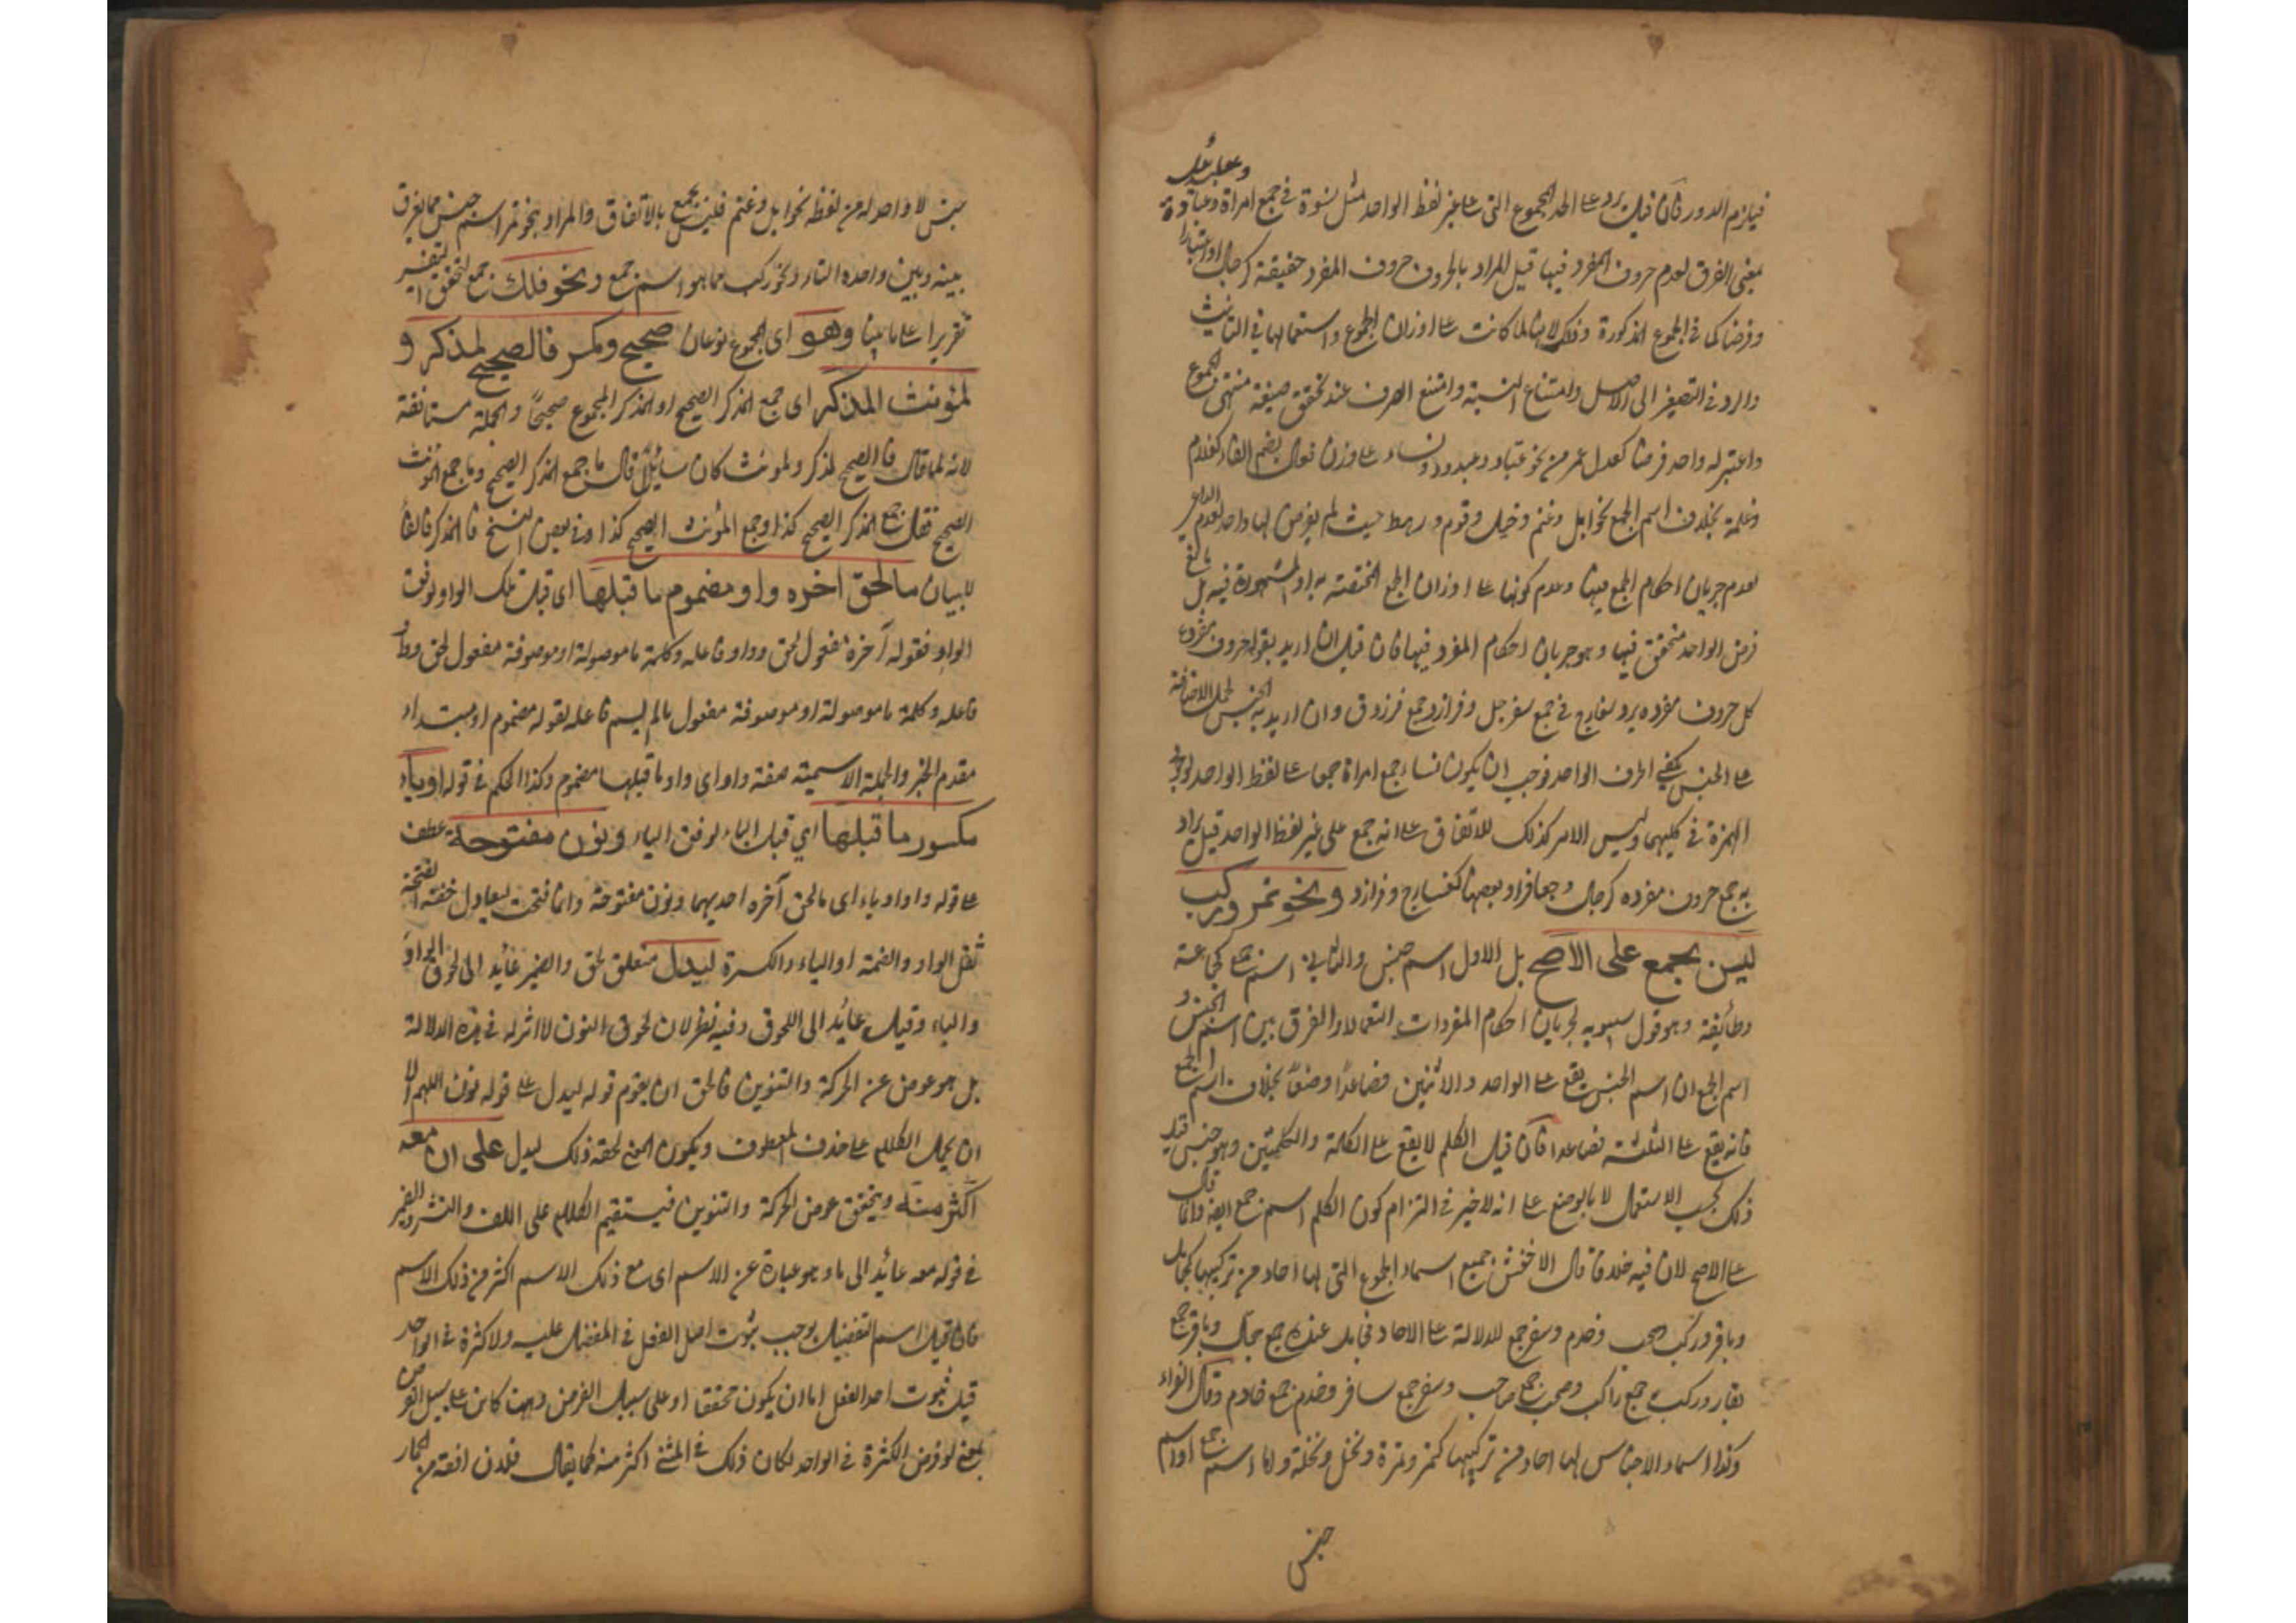 فيلزم الدور فان قيل يرد على الحد الجموع التي على غير لفظ الواحد مثل نسوة في جمع امراة
معنى الفرق لعدم حروف المفرد فيها قيل المراد بالحروف حروف المفرد حقيقة كرجال او اعتبارا
وفرضا كما في الجموع المذكورة وذلك لانها لما كانت على اوزان الجموع واستعمالها في التانيث
والرد في التصغير الى الاصل وامتناع النسبة وامتنع الصرف عند تحقق صيغة منتهى الجموع
واعتبر له واحد فرضا كعدل عمر من نحو عباديد ونساء على وزن فعال بضم الفاء كغلام
وغلمة بخلاف اسم الجمع نحو ابل وغنم وخيل وقوم ورهط حيث لم يفرض لها واحد لعدم الداعي
لعدم جريان احكام الجمع فيها وعدم كونها على اوزان الجمع المختصة به او المشهورة فيه بل
فرض الواحد متحقق فيها وهو جريان احكام المفرد فيها فان قيل ان اريد بقوله حروف مفرده
كل حروف مفرده يرد سفارج في جمع سفرجل وفرازد جمع فرزدق وان اريد به الجنس لحمل الاضافة
على الجنس يكفي الحرف الواحد فوجب ان يكون نساء جمع امراة جمعا على لفظ الواحد لوجود
الهمزة في كليهما وليس الامر كذلك للاتفاق على انه جمع على غير لفظ الواحد قيل يراد
به جمع حروف مفرده كرجال وجعافر او بعضها كسفارج وفرازد ونحو تمر وركب
ليس بجمع على الاصح بل الاول اسم جنس والثاني اسم جمع كجماعة
وطائفة وهو قول سيبويه لجريان احكام المفردات استعمالا والفرق بين اسم الجنس و
اسم الجمع ان اسم الجنس يقع على الواحد والاثنين فصاعدا وضعا بخلاف اسم الجمع
فانه يقع على الثلثة فصاعدا فان قيل الكلم لا يقع على الكلمة والكلمتين وهو جنس قيل
ذلك بحسب الاستعمال لا بالوضع على انه لا خير في التزام كون الكلم اسم جمع ايضا وانما قال
على الاصح لان فيه خلافا قال الاخفش جميع اسماء الجموع التي لها احاد من تركيبها كجامل
وباقر وركب وصحب وخدم وسفر جمع للدلالة على الاحاد فجامل عنده جمع جمل وباقر جمع
بقار وركب جمع راكب وصحب جمع صاحب وسفر جمع سافر وخدم جمع خادم وقال الفراء
وكذا اسماء الاجناس لها احاد من تركيبها كتمر وتمرة ونخل ونخلة واما اسم جمع او اسم
جنس
جنس لا واحد له من لفظه نحو ابل وغنم فليس بجمع بالاتفاق والمراد بنحو تمر اسم جنس مما يفرق
بينه وبين واحده التاء ونحو ركب مما هو اسم جمع ونحو فلك جمع لتحقق التغير
تقديرا على ما بينا وهو اى الجموع نوعان صحيح ومكسر فالصحيح لمذكر و
لمؤنث المذكر اى جمع المذكر الصحيح او المذكر المجموع صحيحا والجملة مستانفة
لانه لما قال فالصحيح لمذكر ولمونث كان سايلا قال ما جمع المذكر الصحيح وما جمع المونث
الصحيح فقال جمع المذكر الصحيح كذا وجمع المؤنث الصحيح كذا وفي بعض النسخ فالمذكر فالفا
للبيان ما لحق اخره واو مضموم ما قبلها اى قبل تلك الواو لوفق
الواو فقوله آخره مفعول لحق وواو فاعله وكلمة ما موصولة او موصوفة مفعول لحق وواو
فاعله وكلمة ما موصولة او موصوفة مفعول ما لم يسم فاعله لقوله مضموم او مبتداء
مقدم الخبر والجملة الاسمية صفة واو اى واو ما قبلها مضموم وكذا الحكم في قوله او ياء
مكسور ما قبلها اي قبل الياء لوفق الياء ونون مفتوحة عطف
على قوله واو او ياء اى ما لحق آخره احديهما ونون مفتوحة وانما فتحت ليعادل خفة الفتحة
ثقل الواو والضمة او الياء والكسرة ليدل متعلق لحق والضمير عائد الى لحوق الواو
والياء وقيل عائد الى اللحوق وفيه نظر لان لحوق النون لا اثر له في هذه الدلالة
بل هو عوض عن الحركة والتنوين فالحق ان يقدم قوله ليدل على قوله نون اللهم الا
ان يحمل الكلام على حذف المعطوف ويكون المعنى لحقه ذلك ليدل على ان معه
اكثر منه ويتحقق عوض الحركة والتنوين فيستقيم الكلام على اللف والنشر والضمير
في قوله معه عائد الى ما وهو عبارة عن الاسم اى مع ذلك الاسم اكثر من ذلك الاسم
فان قيل اسم التفضيل يوجب ثبوت اصل الفعل في المفضل عليه ولا كثرة في الواحد
قيل ثبوت اصل الفعل اما ان يكون تحققا او على سبيل الفرض وههنا كان على سبيل الفرض
بمعنى لو فرض الكثرة في الواحد لكان ذلك في المثنى اكثر منه كما يقال فلان افقه من الحمار